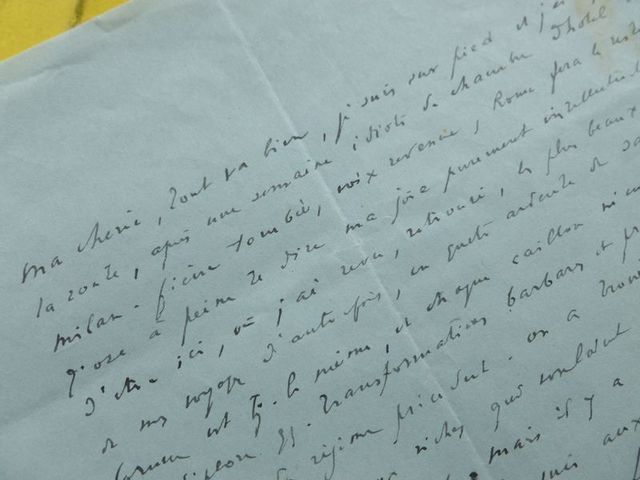 ma chérie, tout va bien, je suis sur pied et j'ai
la route, après une semaine idiote de chambre d'hôtel
milan. fièvre tombée, voix revenue, Rome fera le reste
J'ose à peine te dire ma joie purement intellectuelle
d'être ici, où j'ai revu, retrouvé, les plus beaux
de mes voyages d'autrefois, en quête ardente de
est tj. le même, et chaque caillou
transformations barbares et
régime précédent. on a
riches qui voulaient
mais il y a
suis aux